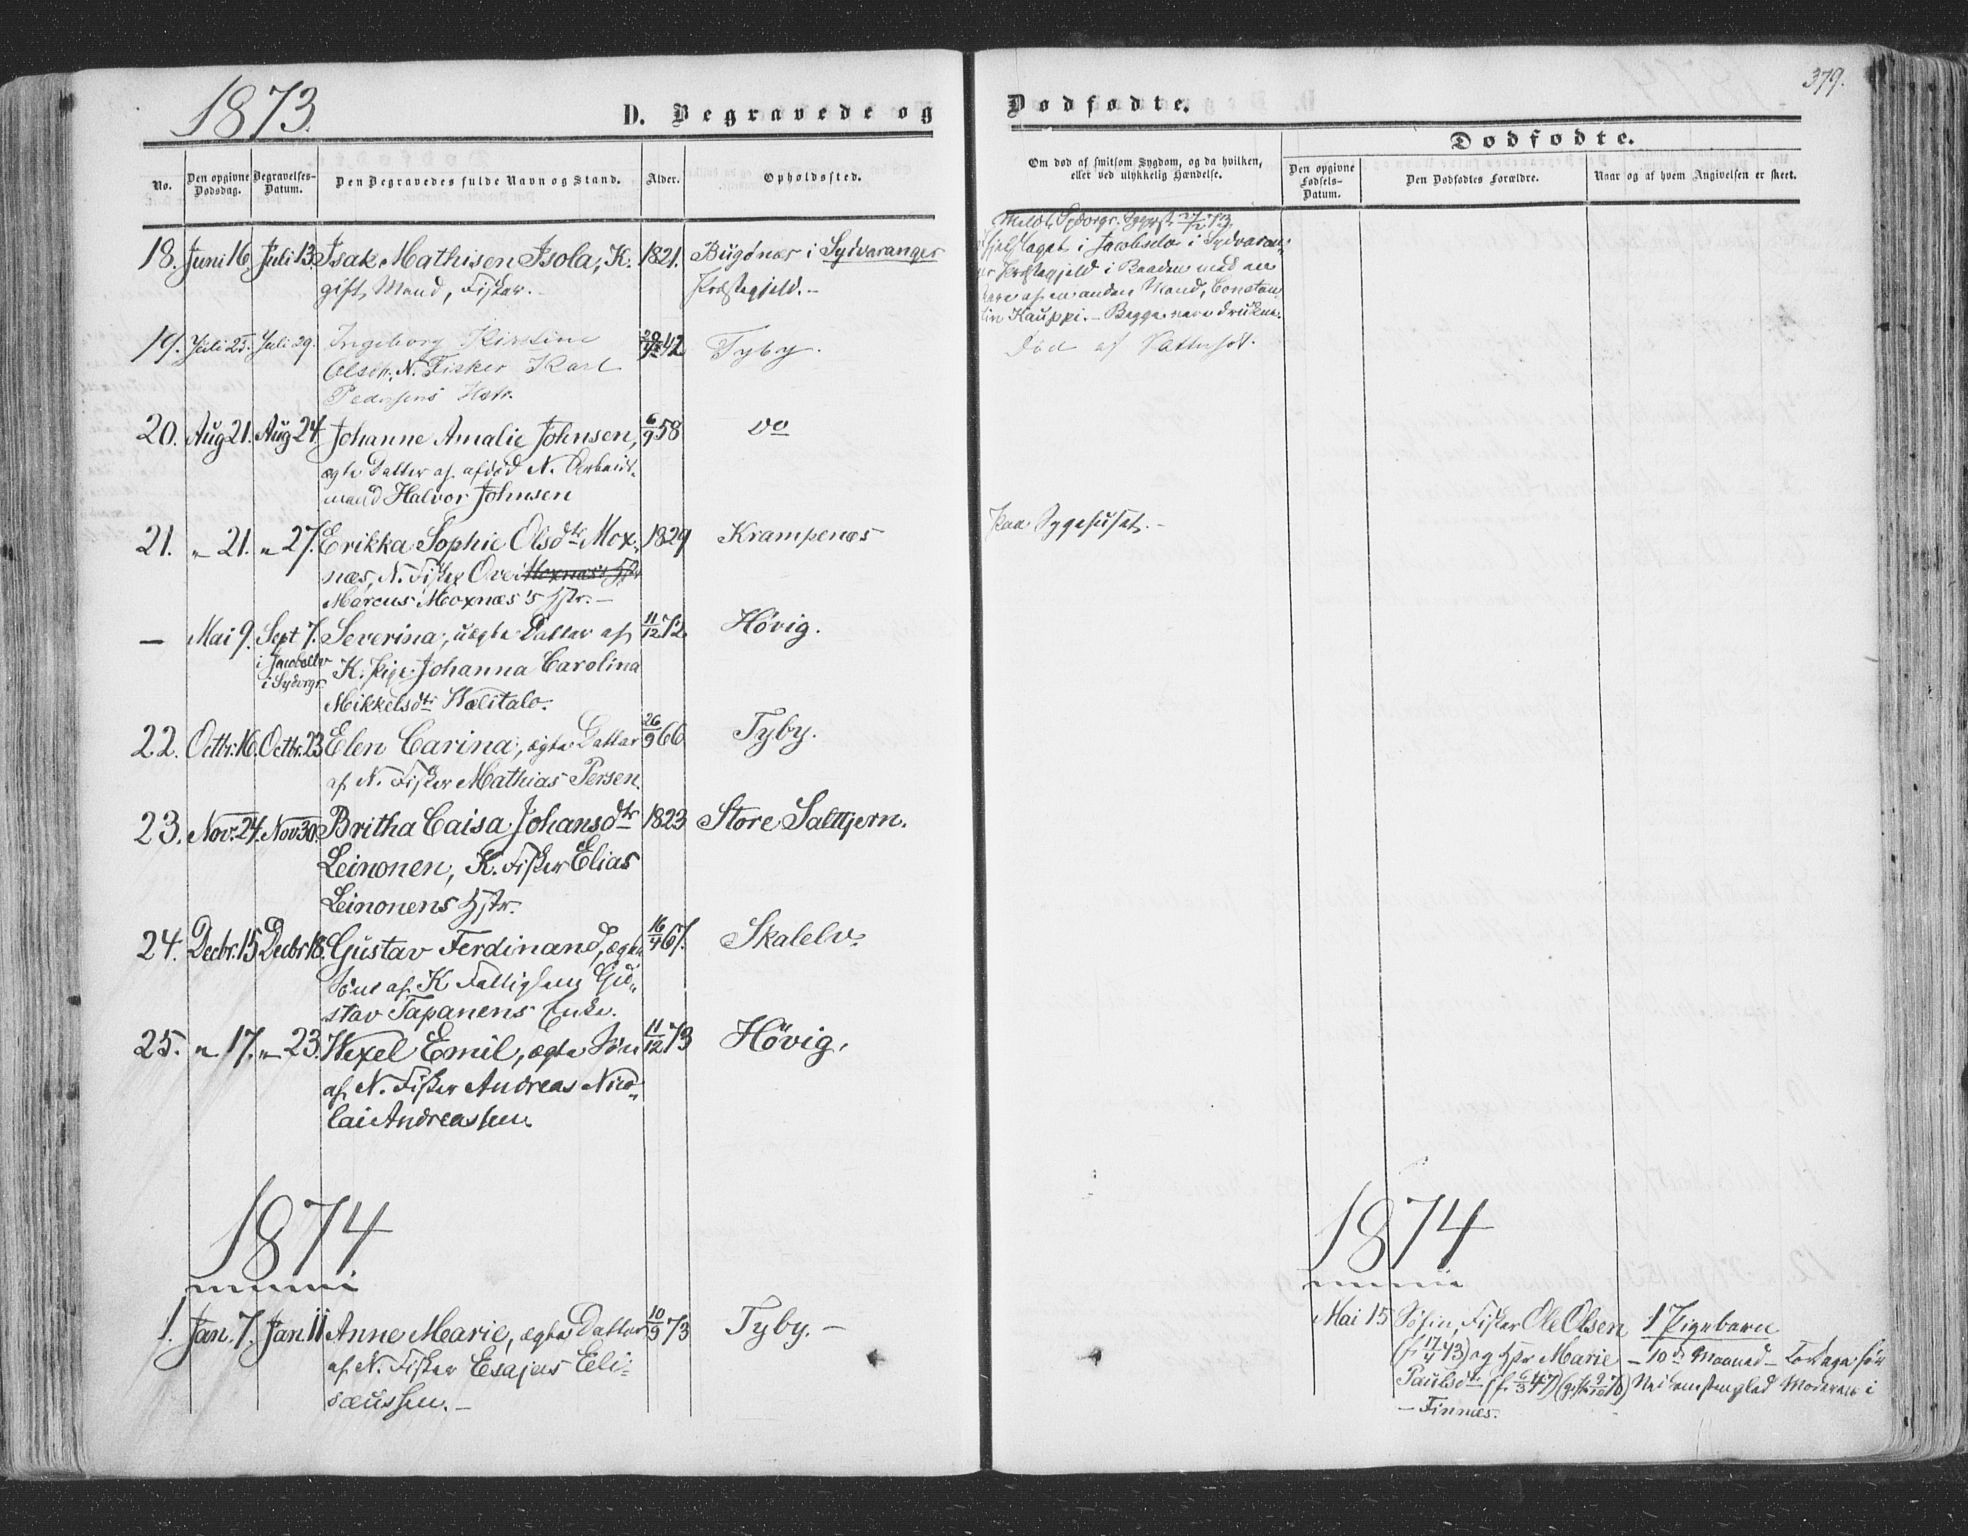 1873.
D. Begravede og
No.
Den opgivne Dødsdag.
Begravelses-Datum.
Den Begravedes fulde Navn og Stand.
Alder.
Opholdssted.
18. Juni 16. Juli 13. Isak Mathisen Isola, K. 1821. Bugönæs i Sydvaranger
gift Mand, Fisker. Præstegjeld.-
19. Juli 25. Juli 29. Ingeborg Kirstine 42 Tyby.
Olsen, N. Fisker Karl
Pedersens Hstr.
20. Aug 21. Aug 24 Johanne Amalie Johnsen, 6/9 58 do
ægte Datter af afdød N. Arbeids-
mand Halvor Johnsen
21. " 21. " 27. Erikka Sophie Olsdtr Mox- 1829 Krampenæs
næs, N. Fisker Ove Moxnæs' Hstr
Marcus Moxnæs's Hstr.-
— Mai 9. Sept 7. Severina, uægte Datter af 11/12 72. Hövig.
i Jacobselv K. Pige Johanna Carolina
i Sydvrgr. Mikkelsdtr Wælitalo.
22. Octbr. 16. Octbr. 23 Elen Carina, ægte Datter 26/9 66 Tyby.
af N. Fisker Mathias Persen.
23. Nov. 24. Nov 30. Britha Caisa Johansdtr 1823 Store Saltijern.
Leinonen, K. Fisker Elias
Leinonens Hstr.
24. Decbr. 15 Decbr 18. Gustav Ferdinand, ægte 16/4 67. Skalelv.
Søn af K Fattiglem Gu-
stav Tapanens Enke.
25. " 17. " 23. Wexel Emil, ægte Søn 11/12 73 Hövig,
af N. Fisker Andreas Nico-
lai Andreassen.
1874
1. Jan. 7. Jan. 11 Anne Marie, ægte Datter 10/9 73 Tyby.-
af N. Fisker Esajas Eli-
sæussen.-
379.
Dødfødte.
Om død af smitsom Sygdom, og da hvilken,
eller ved ulykkelig Hændelse.
Dødfødte.
Den opgivne Fødsels-Datum.
Den Dødfødtes Forældre.
Naar og af hvem Angivelsen er skeet.
i Jacobselv i Sydvaran-
Præstegjeld i Baaden med en
af en anden Mand, Constan-
tin Kauppi.- Begge vare drukne.
Død af Vattersot.
Paa Sygehuset.-
1874
Mai 15 Søfin, Fisker Ole Olsen 1 Pigebarn
(f. 17/4 43) og Hstr Marie - 10de Maaned -
Paulsdtr (f. 6/3 47)
- Finnæs.